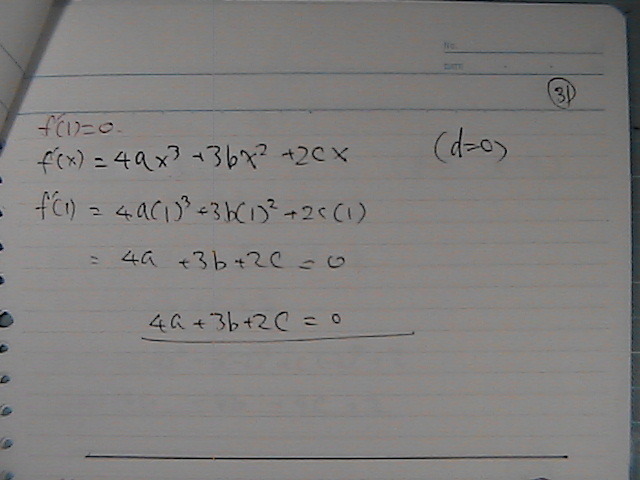 No.
Date
31
f'(1)=0.
f'(x) = 4ax³ +3bx² +2cx (d=0)
f'(1) = 4a(1)³+3b(1)²+2c(1)
= 4a +3b+2c = 0
4a +3b+2c = 0